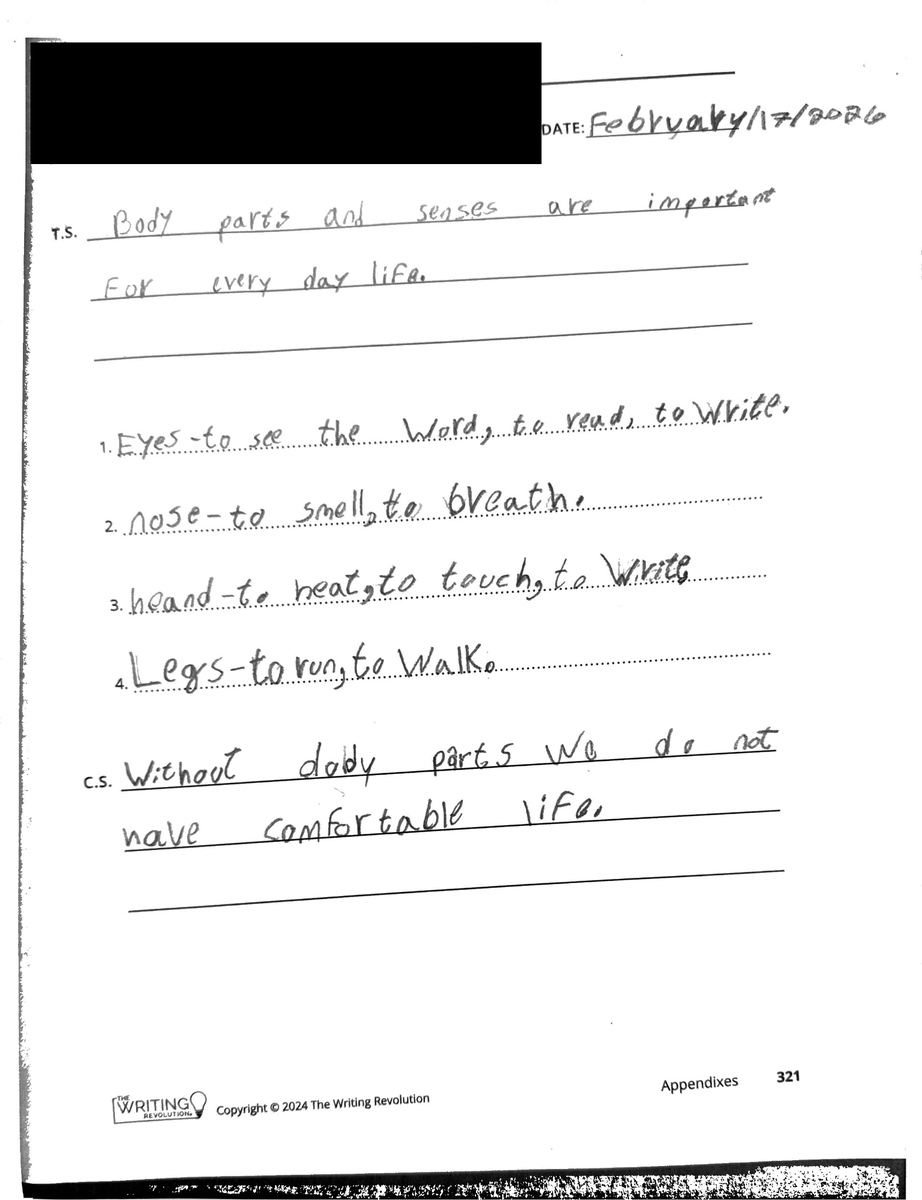 DATE: February/17/2026
T.S. Body parts and senses are important
For every day life.
1. Eyes-to see the Word, to read, to Write.
2. nose-to smell, to breath.
3. heand-to heat, to touch, to Write
4. Legs-to run, to Walk.
C.S. Without dody parts We do not
have comfortable life.
Appendixes 321
THE WRITING REVOLUTION Copyright © 2024 The Writing Revolution